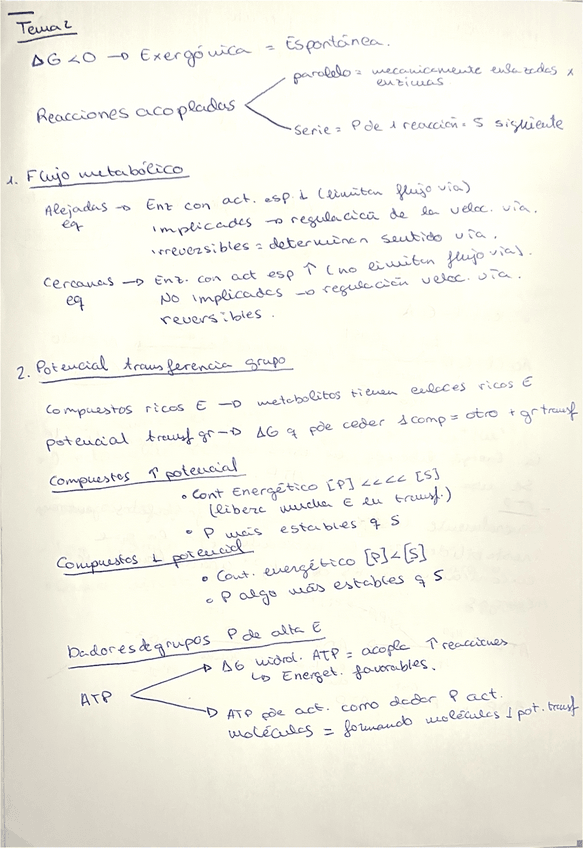 Tema 2
ΔG<0 → Exergónica = Espontánea.
paralelo = mecánicamente enlazadas x
enzimas
Reacciones acopladas
Serie = P de 1 reacción = S siguiente
1. Flujo metabólico
Alejadas → Enz con act. esp ↓ (limitan flujo vía)
eq
implicadas → regulación de la veloc. vía.
irreversibles = determinan sentido vía.
Cercanas → Enz. con act esp ↑ (no limitan flujo vía).
eq
NO implicadas → regulación veloc. vía.
reversibles.
2. Potencial transferencia grupo
Compuestos ricos E → metabolitos tienen enlaces ricos E
potencial transf gr → ΔG q pde ceder 1 comp = otro + gr transf
Compuestos ↑ potencial
• Cont Energético [P] <<<< [S]
(libera mucha E en transf.)
• P más estables q S
Compuestos ↓ potencial
• Cont. energético [P]<[S]
• P algo más estables q S
Dadores de grupos P de alta E
ΔG hidrol. ATP = acopla ↑ reacciones
↳ Energet. favorables.
ATP
ATP pde act. como dador P act.
moléculas = formando moléculas ↓ pot. transf